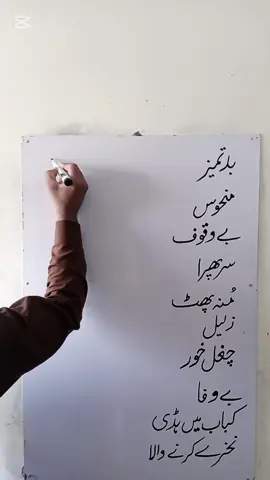 CapCut
بدتمیز
منحوس
بے وقوف
سر پھرا
مُنہ پھٹ
زلیل
چغل خور
بے وفا
کباب میں ہڈی
نخرے کرنے والا